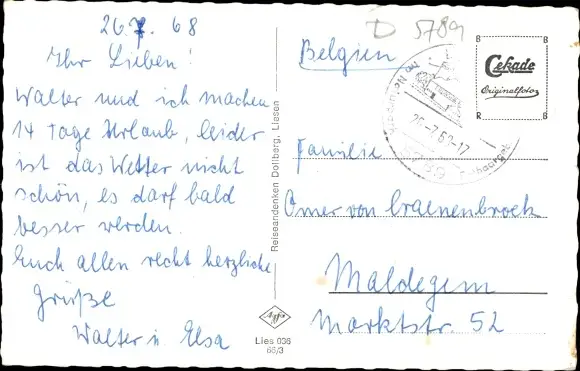 26.7.68
Ihr Lieben!
Walter und ich machen
14 Tage Urlaub, leider
ist das Wetter nicht
schön, es darf bald
besser werden.
Euch allen recht herzliche
Grüße
Walter u Elsa
Reiseandenken Dollberg, Liesen
Agfa
Lies 036
66/3
D 5789
Belgien
B B
Cekade
Originalfoto
R B
26.-7.68-17
Familie
Omer von Craenenbroek
Maldegem
Marktstr. 52